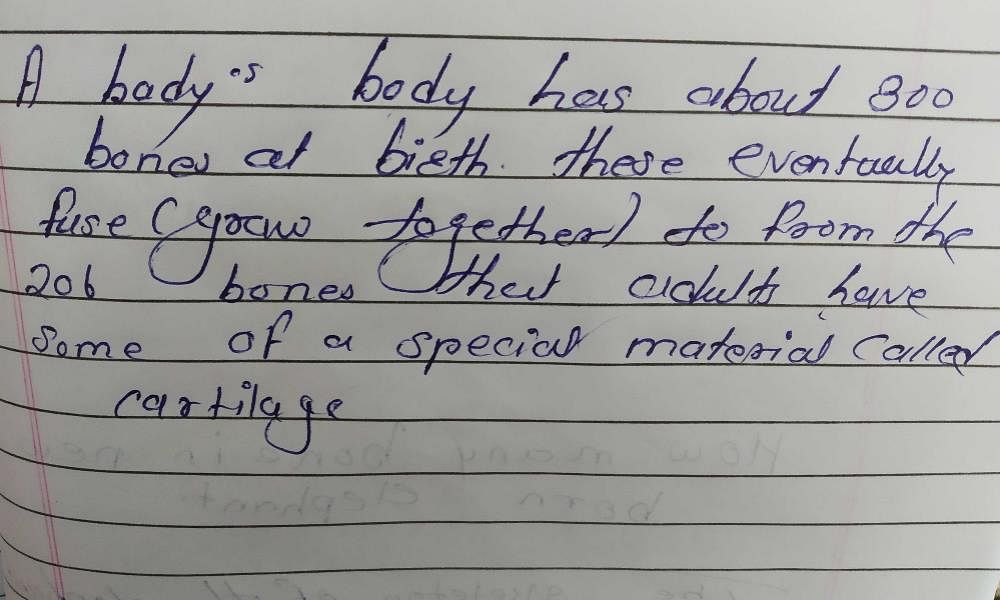 A bady's body has about 300
bones at birth. these eventually
fuse (grow together) to from the
206 bones that adults have
some of a special material called
cartilage
How many bone in new
born elephant